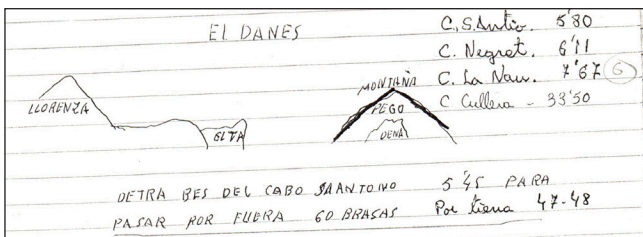 EL DANES
C. S. Antio. 5'80
C. Negret. 6'11
C. La Nau. 7'67 (6)
C Cullera - 33'50
LLORENZA
GLTA
MONTAÑA
PEGO
DENA
DETRA BES DEL CABO SAANTONIO 5'45 PARA
PASAR POR FUERA 60 BRASAS Por tierra 47-48